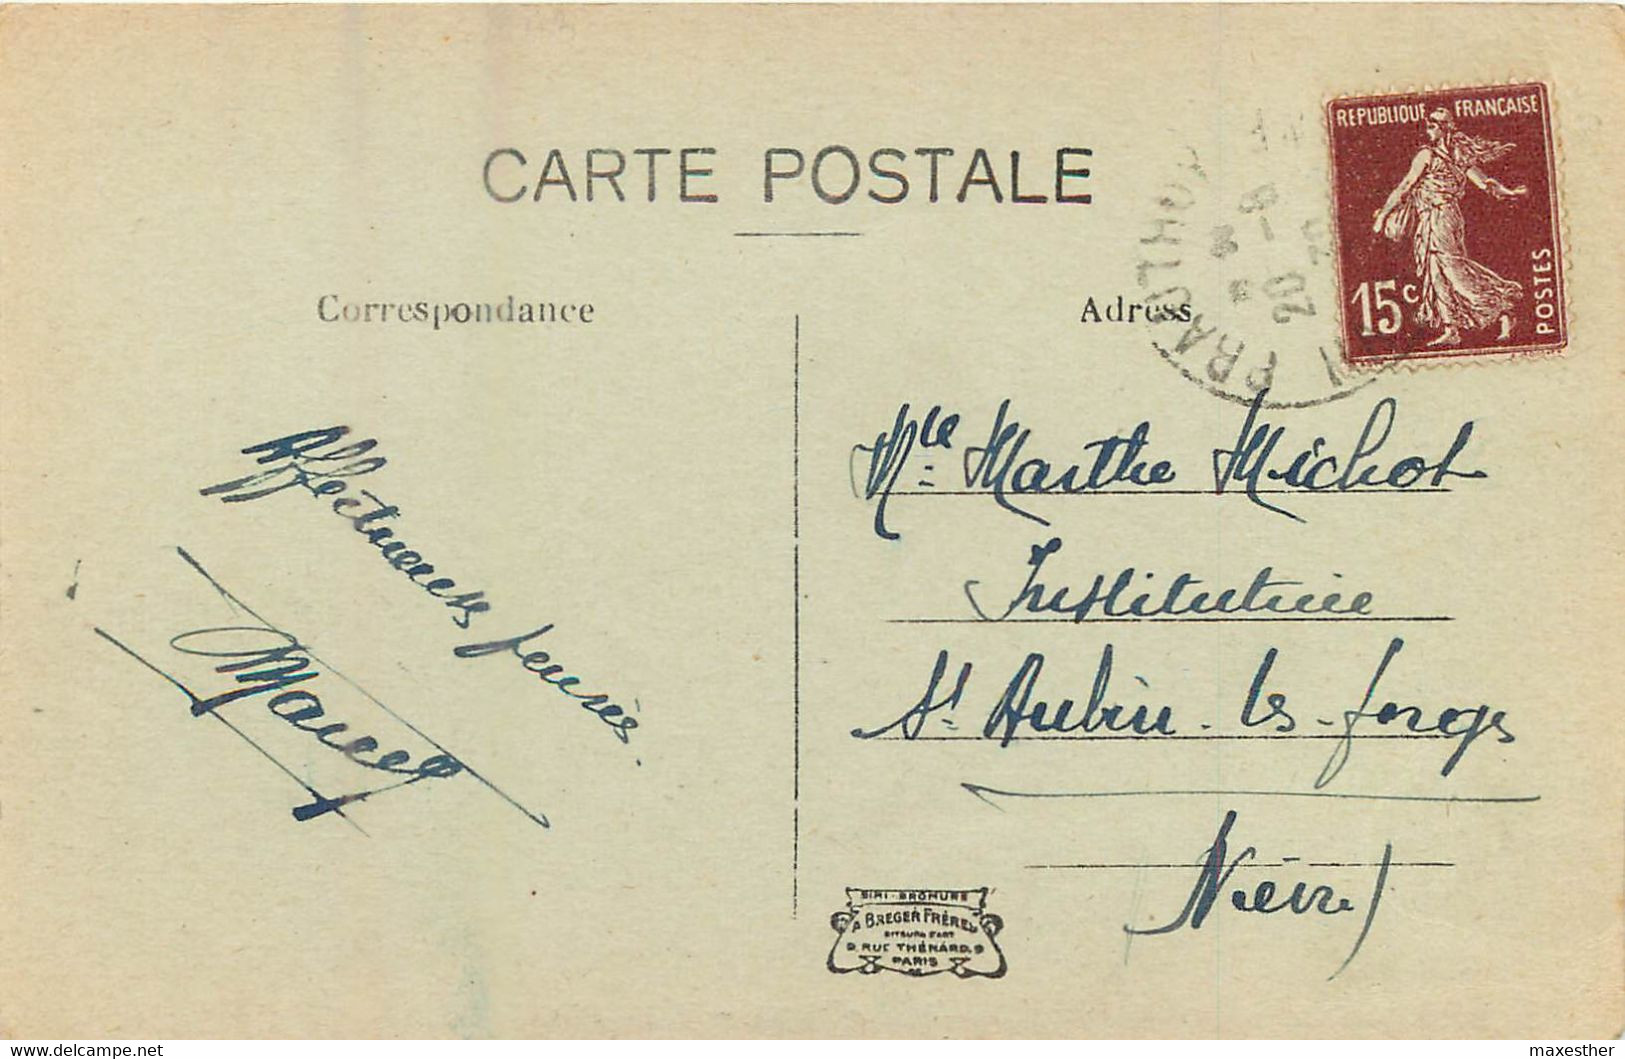 CARTE POSTALE
REPUBLIQUE FRANÇAISE
15c
POSTES
PRAUTHOY
20
Correspondance
Adress
Affectueuses pensées.
Marcel
Mlle Marthe Michot
Institutrice
St Aubin-les-forges
Nièvre)
A BREGER FRÈRES
9, RUE THÉNARD, 9
PARIS
delcampe.net
maxesther